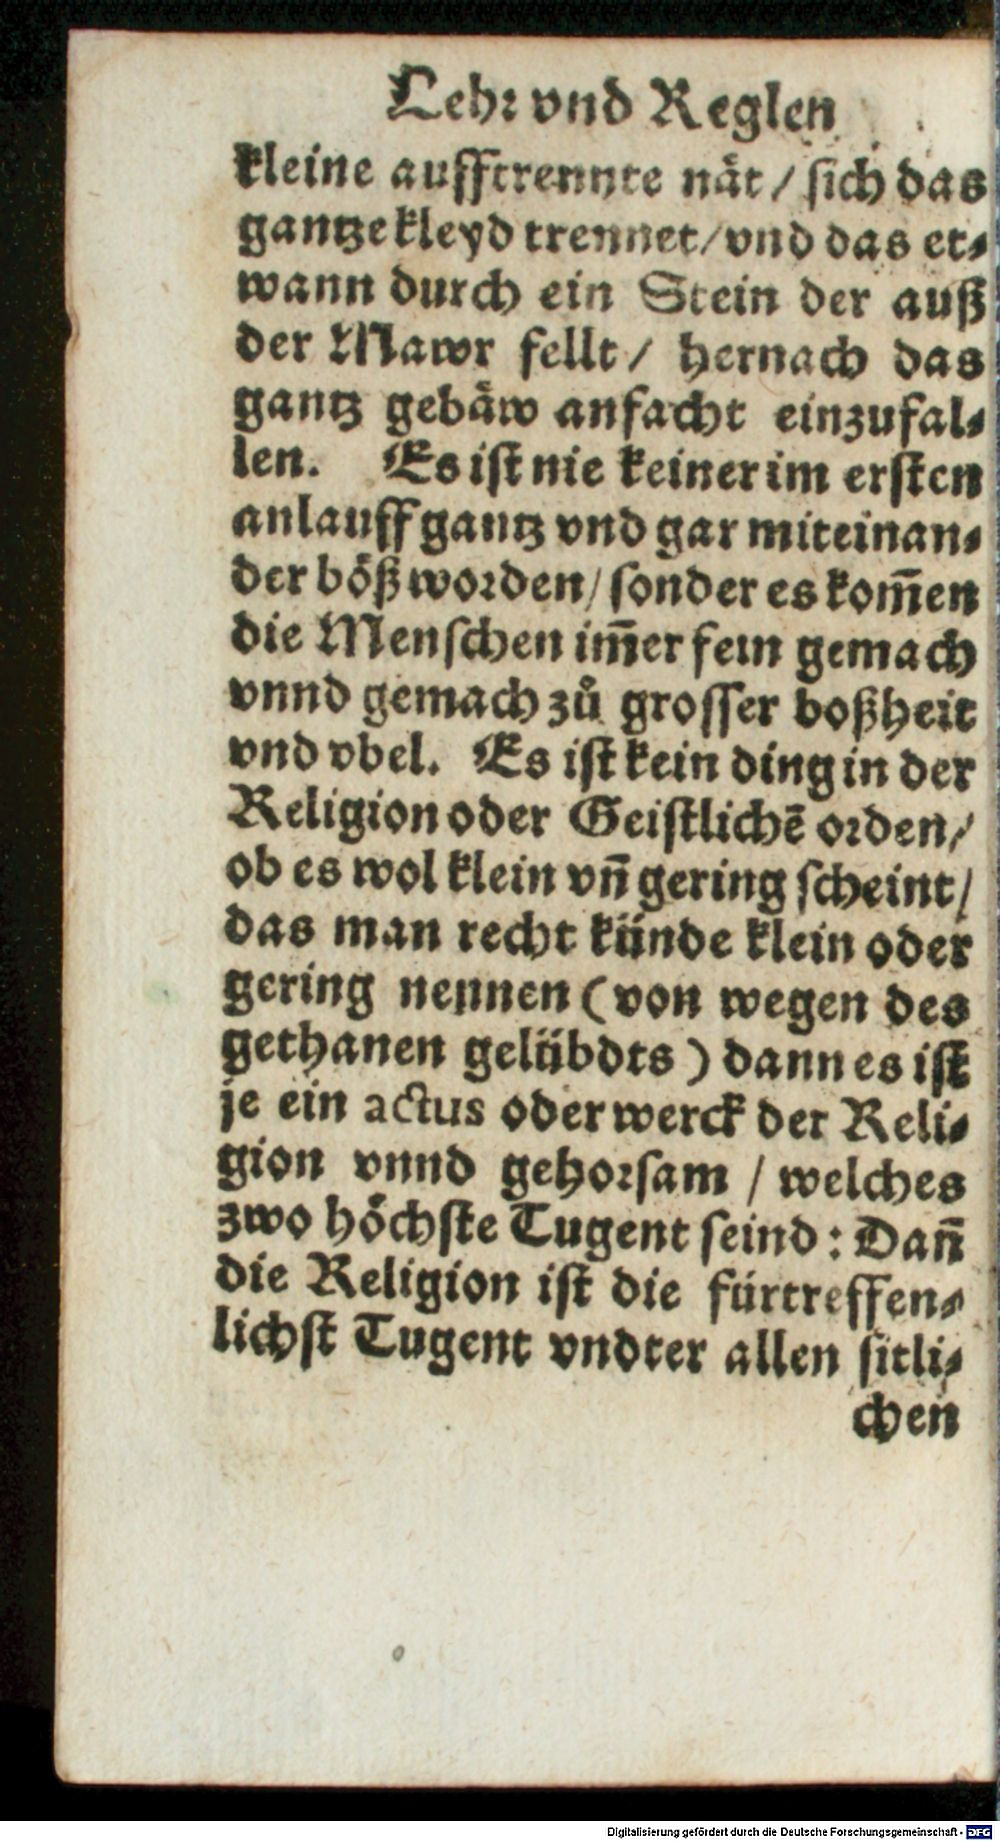 Lehr vnd Reglen
kleine aufftrennte nåt / sich das
gantze kleyd trennet / vnd das et⸗
wann durch ein Stein der auß
der Mawr fellt / hernach das
gantz gebåw anfacht einzufal⸗
len. Es ist nie keiner im ersten
anlauff gantz vnd gar miteinan⸗
der böß worden / sonder es kom̄en
die Menschen im̄er fein gemach
vnnd gemach zů grosser boßheit
vnd vbel. Es ist kein ding in der
Religion oder Geistlichē orden /
ob es wol klein vn̄ gering scheint /
das man recht künde klein oder
gering nennen (von wegen des
gethanen gelübdts) dann es ist
je ein actus oder werck der Reli⸗
gion vnnd gehorsam / welches
zwo höchste Tugent seind : Dan̄
die Religion ist die fürtreffen⸗
lichst Tugent vndter allen sitli⸗
chen
Digitalisierung gefördert durch die Deutsche Forschungsgemeinschaft - DFG